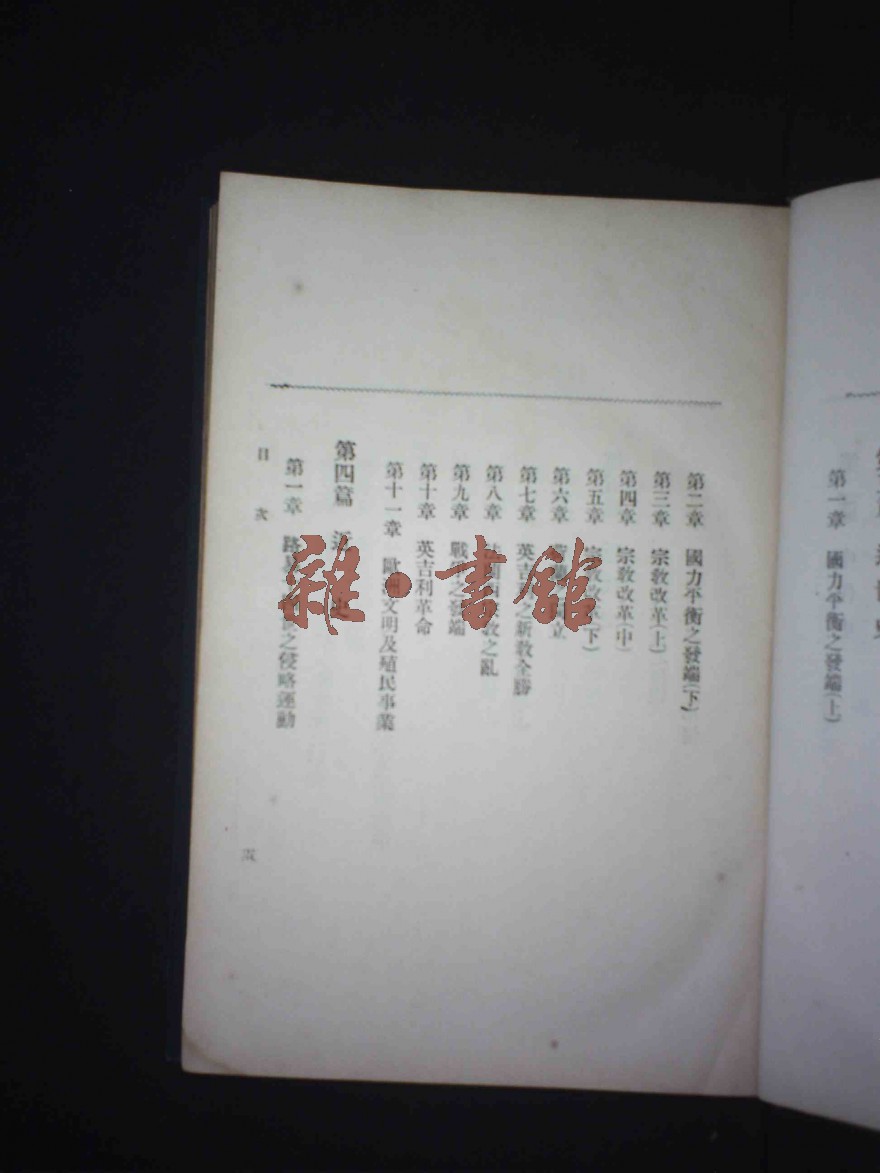 第一章 國力平衡之發端(上)
第二章 國力平衡之發端(下)
第三章 宗教改革(上)
第四章 宗教改革(中)
第五章 宗教改革(下)
第六章 立
第七章 英吉 之新教全勝
第八章 教之亂
第九章 戰 之發端
第十章 英吉利革命
第十一章 歐洲文明及殖民事業
第四篇 近 史
第一章 路易 之侵略運動
目次
雜·書館